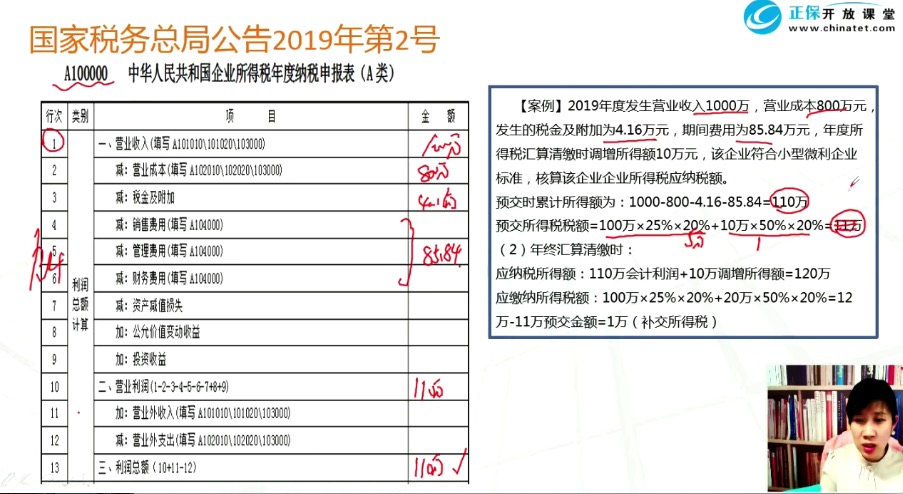 正保开放课堂
www.chinatet.com
国家税务总局公告2019年第2号
A100000 中华人民共和国企业所得税年度纳税申报表(A类)
行次 类别 项 目 金 额
1 一、营业收入(填写A101010\101020\103000)
2 减:营业成本(填写A102010\102020\103000) 800万
3 减:税金及附加
4 减:销售费用(填写A104000)
5 减:管理费用(填写A104000) 85.84
6 减:财务费用(填写A104000)
利润总额计算
7 减:资产减值损失
8 加:公允价值变动收益
9 加:投资收益
10 二、营业利润(1-2-3-4-5-6-7+8+9) 110万
11 加:营业外收入(填写A101010\101020\103000)
12 减:营业外支出(填写A102010\102020\103000)
13 三、利润总额(10+11-12) 110万
【案例】2019年度发生营业收入1000万,营业成本800万元,
发生的税金及附加为4.16万元,期间费用为85.84万元,年度所
得税汇算清缴时调增所得额10万元,该企业符合小型微利企业
标准,核算该企业企业所得税应纳税额。
预交时累计所得额为:1000-800-4.16-85.84=110万
预交所得税税额:=100万×25%×20%+10万×50%×20%=11万
5万 1
(2)年终汇算清缴时:
应纳税所得额:110万会计利润+10万调增所得额=120万
应缴纳所得税额:100万×25%×20%+20万×50%×20%=12
万-11万预交金额=1万(补交所得税)